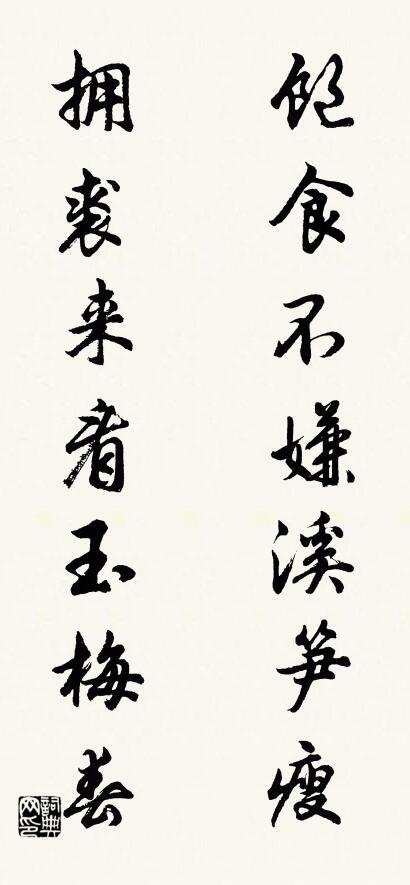 饱食不嫌溪笋瘦
拥裘来看玉梅春
詞典网印